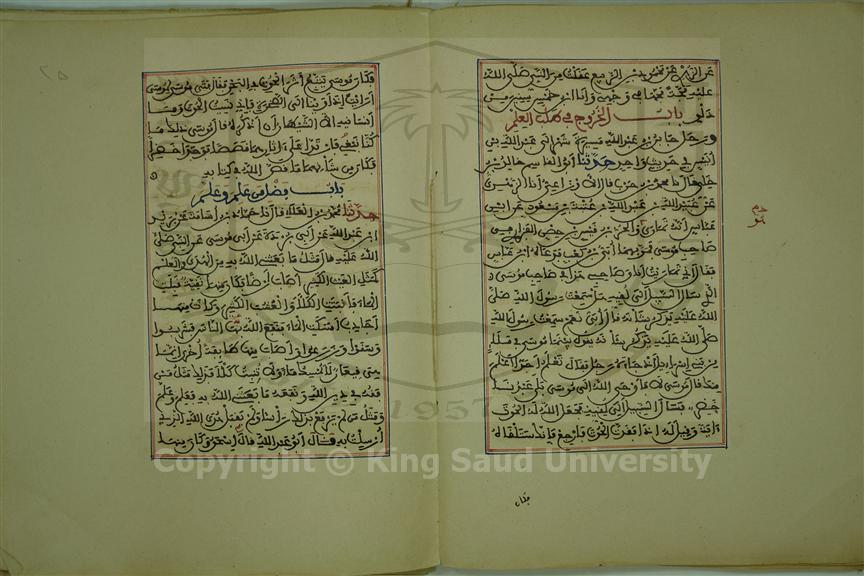 عن الزهري عن محمود بن الربيع عقلت من النبي صلى الله
عليه مجة مجها في وجهي وأنا ابن خمس سنين من
دلو باب الخروج في طلب العلم
ورحل جابر بن عبد الله مسيرة شهر إلى عبد الله بن
أنيس في حديث واحد حدثنا أبو القاسم خالد بن
خلي قال نا محمد بن حرب قال الأوزاعي أنا الزهري
عن عبيد الله بن عبد الله بن عتبة بن مسعود عن ابن
عباس أنه تمارى والحر بن قيس بن حصن الفزاري في
صاحب موسى فمر بهما أبي بن كعب فدعاه ابن عباس
فقال إني تماريت أنا وصاحبي هذا في صاحب موسى
الذي سأل السبيل إلى لقيه هل سمعت رسول الله صلى
الله عليه يذكر شأنه قال أبي نعم سمعت رسول الله
صلى الله عليه يذكر شأنه يقول بينما موسى في ملإ
من بني إسرائيل إذ جاءه رجل فقال تعلم أحدا أعلم
منك قال موسى لا فأوحى الله إلى موسى بلى عبدنا
خضر فسأل السبيل إلى لقيه فجعل الله له الحوت
آية وقيل له إذا فقدت الحوت فارجع فإنك ستلقاه
فكان
فكان موسى يتبع أثر الحوت في البحر فقال فتى موسى لموسى
أرأيت إذ أوينا إلى الصخرة فإني نسيت الحوت وما
أنسانيه إلا الشيطان أن أذكره قال موسى ذلك ما
كنا نبغي فارتدا على آثارهما قصصا فوجدا خضرا
فكان من شأنهما ما قص الله في كتابه
باب فضل من علم وعلم
حدثنا محمد بن العلاء قال نا حماد بن أسامة عن بريد
ابن عبد الله عن أبي بردة عن أبي موسى عن النبي صلى
الله عليه قال مثل ما بعثني الله به من الهدى والعلم
كمثل الغيث الكثير أصاب أرضا فكان منها نقية قبلت
الماء فأنبتت الكلأ والعشب الكثير وكانت منها
أجادب أمسكت الماء فنفع الله بها الناس فشربوا
وسقوا وزرعوا وأصاب منها طائفة أخرى إنما
هي قيعان لا تمسك ماء ولا تنبت كلأ فذلك مثل من
فقه في دين الله ونفعه ما بعثني الله به فعلم وعلم
ومثل من لم يرفع بذلك رأسا ولم يقبل هدى الله الذي
أرسلت به قال أبو عبد الله قال إسحاق وكان منها
1957
Copyright © King Saud University